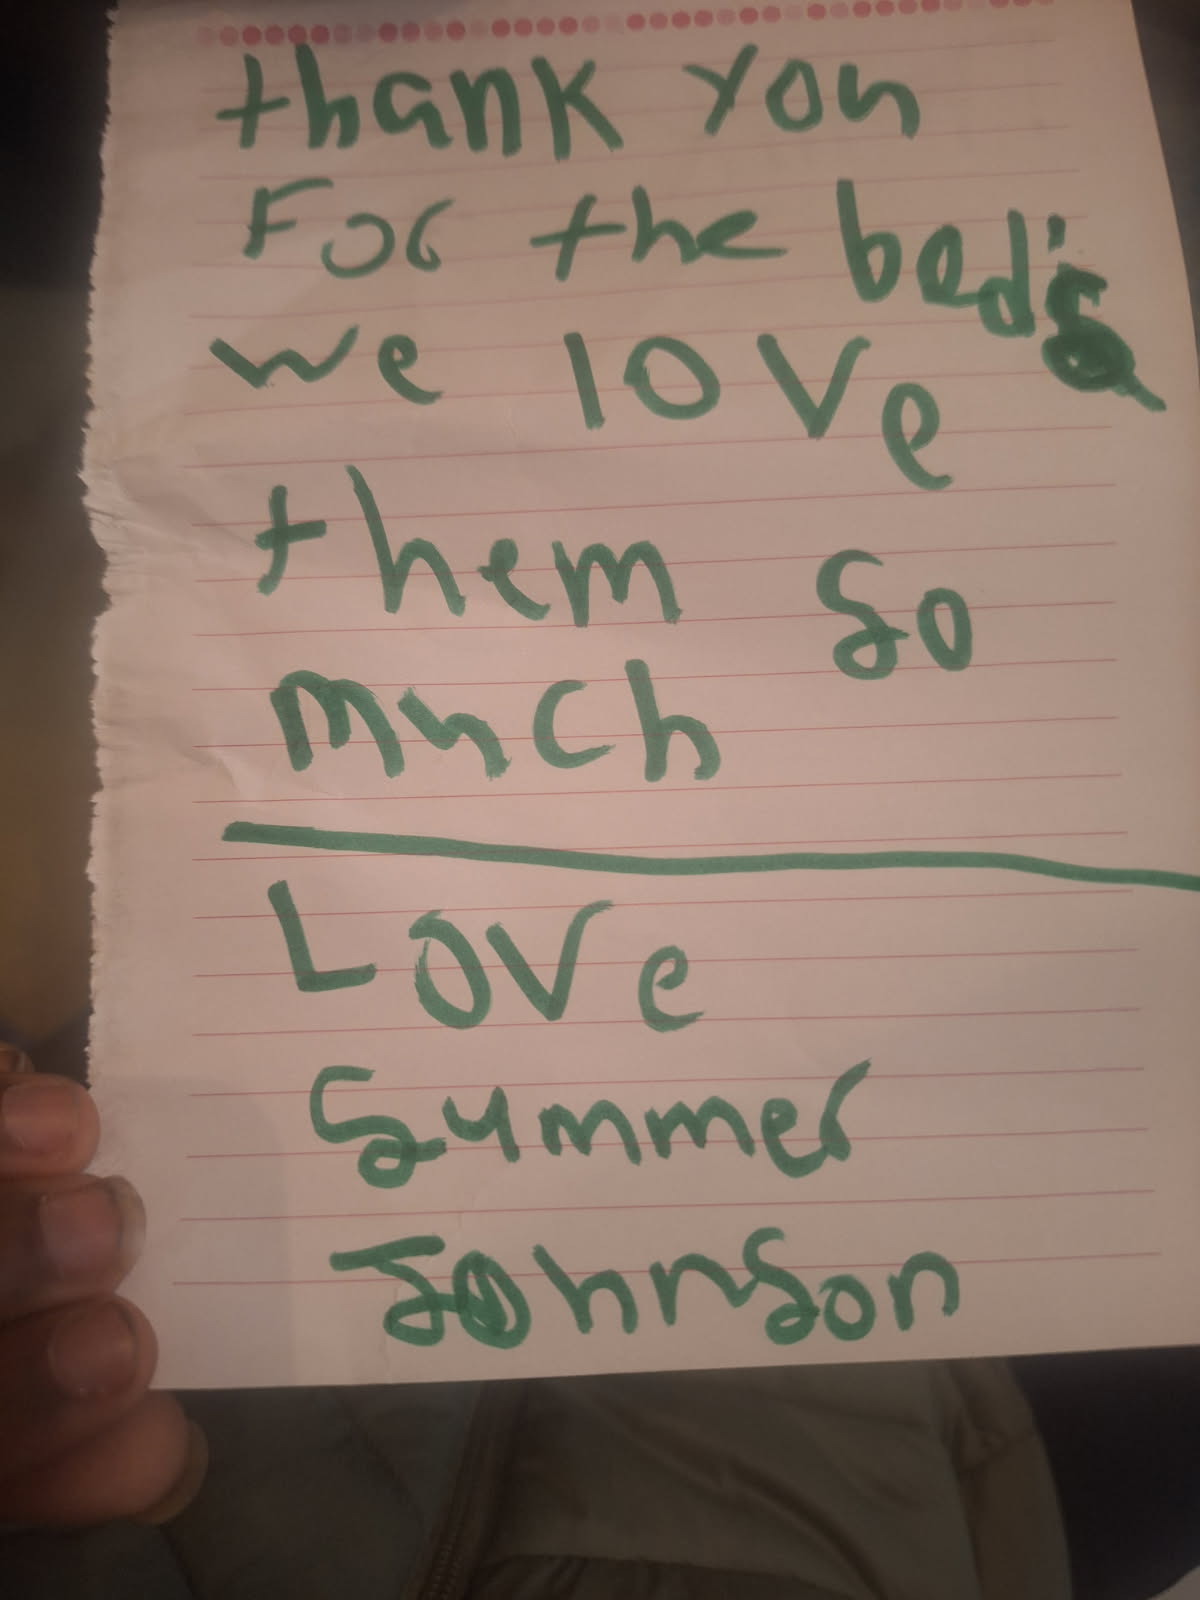 thank you
For the bed's
we love
them so
much
Love
Summer
Johnson